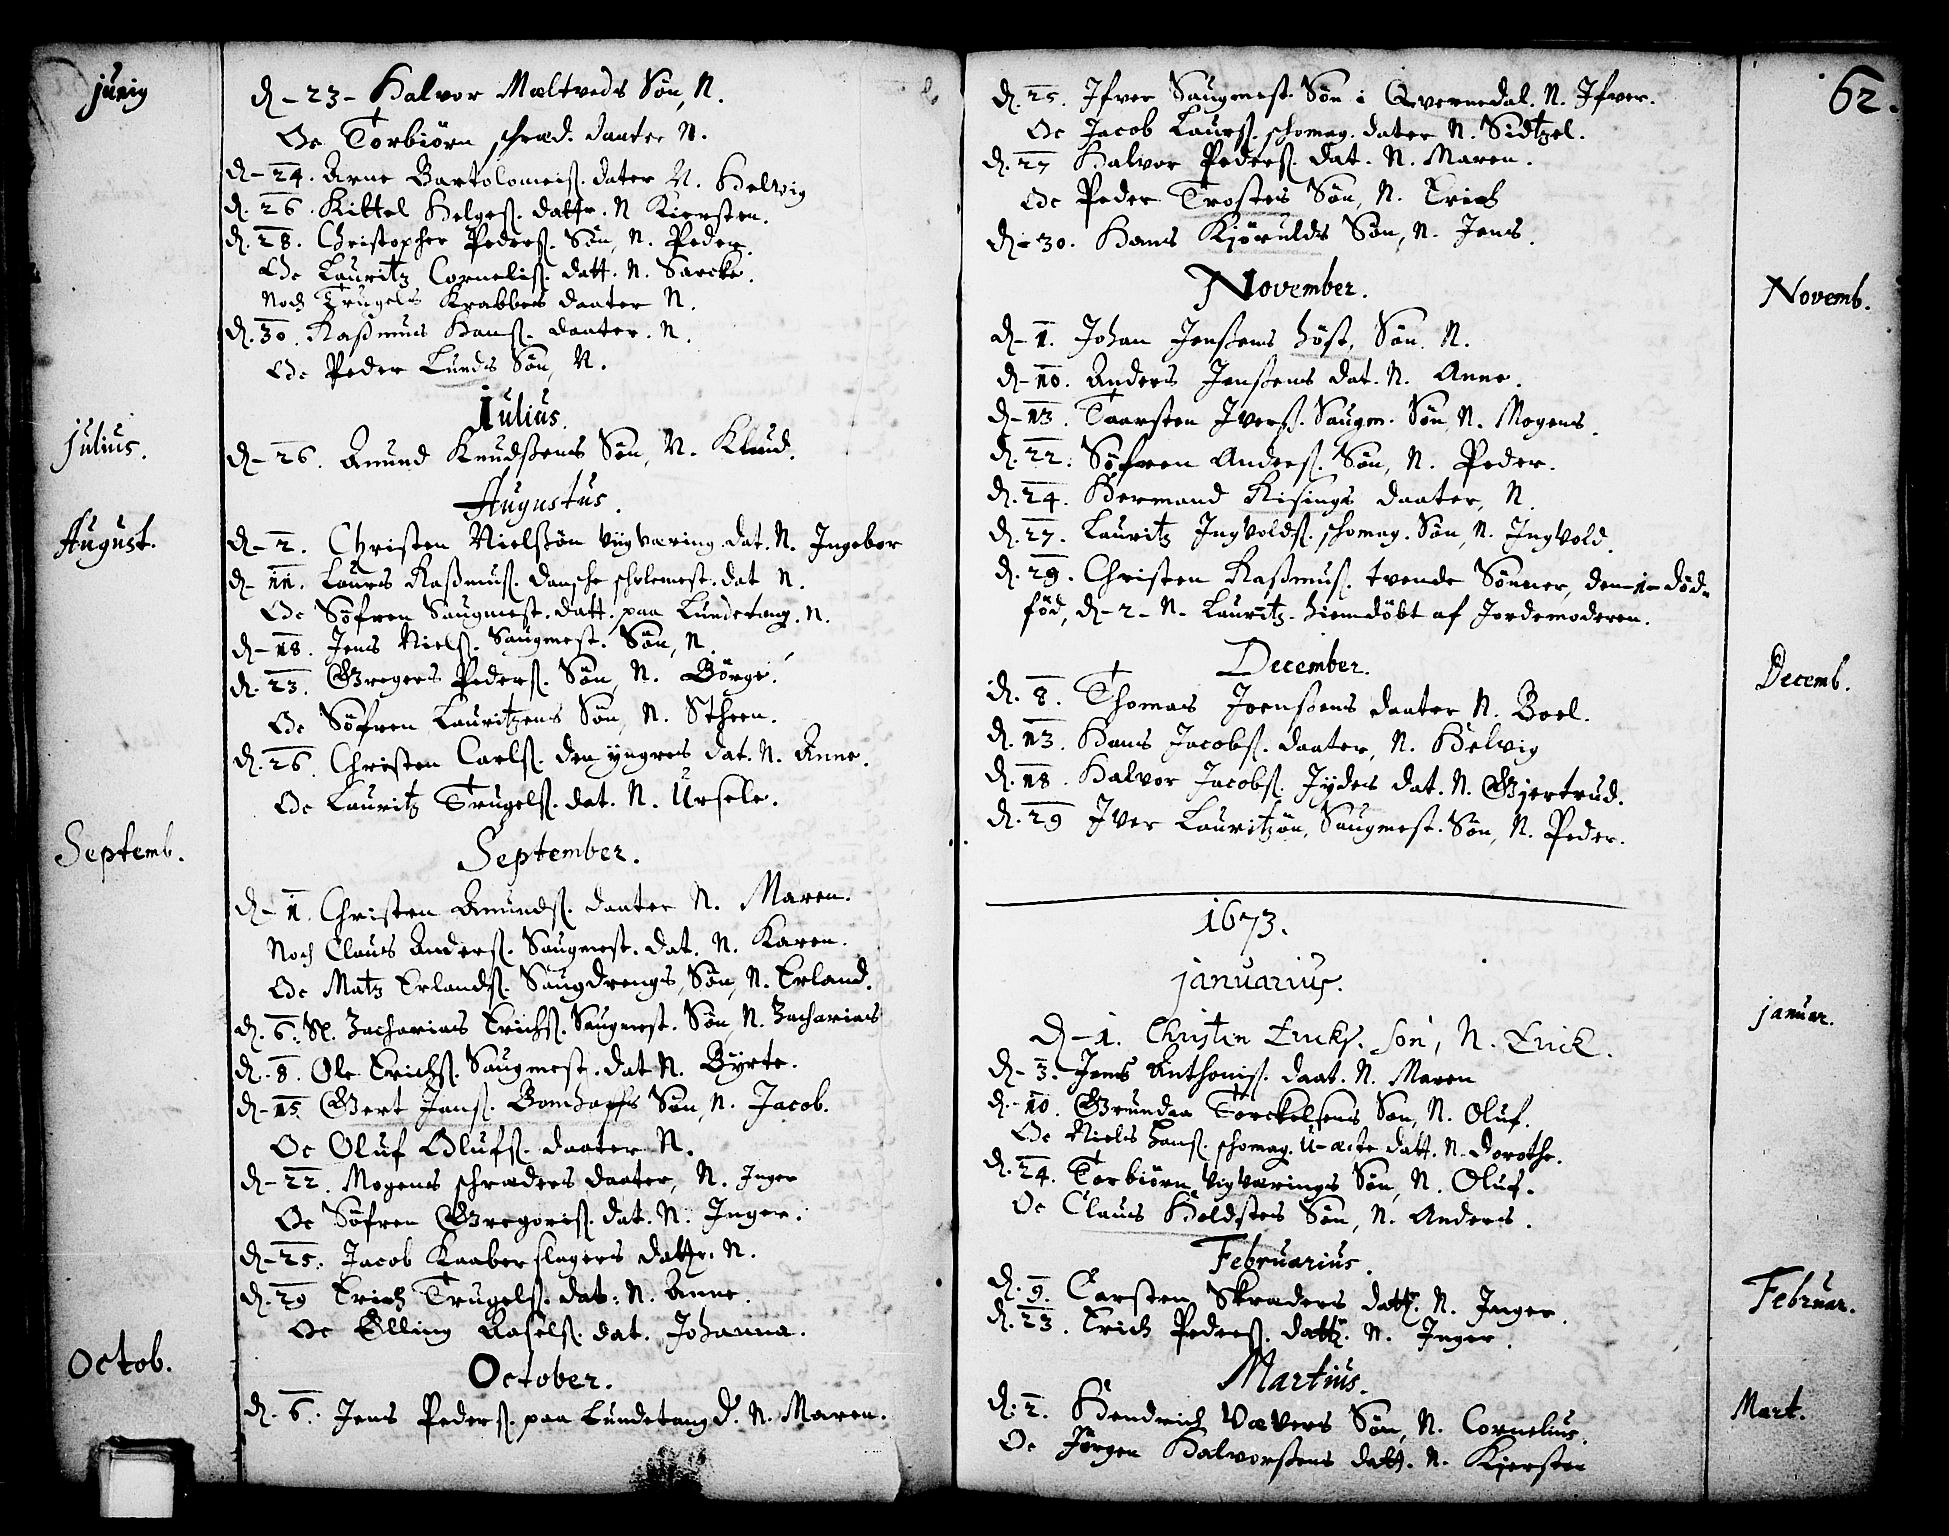 junij
d – 23 – Halvor Mæltveds Sön, N.
Oc Torbiörn schræd. daater N.
d – 24. Arne Bartolomeiſ. dater N. Helvig
d. 26. Kittel Helgeſ. dattr. N Kiersten.
d. 28. Christopher Pederſ. Sön, N. Peder.
Oc Lauritz Corneliſ. datt. N. Sarcke.
Noch Trugels Krabbes daater N.
d. 30. Raßmus Hanſ. daater. N.
Oc Peder Lunds Sön, N.
Julius.
julius.
d – 26. Amund Knudßens Sön, N. Knud.
Augustus.
August.
d – 2. Christen Nielßön viigværing. dat. N. Ingebor
d – 11. Laurs Raßmuſ. dansche scholemest. dat N.
Oc Söfren Saugmest. datt. paa Lundetang. N.
d – 18. Jens Nielſ. Saugmest. Sön, N.
d. 23. Gregers Pederſ. Sön, N. Börge.
Oc Söfren Lauritzens Sön, N. Stheen.
d. 26. Christen Carlſ. den yngres dat. N. Anne.
Oc Lauritz Trugelſ. dat. N. Ursele.
September.
Septemb.
d – 1. Christen Amundſ. daater N. Maren.
Noch Claus Anderſ. Saugmest. dat. N. Karen.
Oc Matz Erlandſ. Saugdrengs, Sön, N. Erland.
d. 6. Sl. Zacharias Erichſ. Saugmest. Sön, N. Zacharias
d. 8. Ole Erichſ. Saugmest. dat N. Byrte.
d – 15 Gert Janſ. Bomhoffs Sön, N. Jacob.
Oc Oluf Olufſ. daater N.
d – 22. Mogens schræders daater, N. Inger
Oc Söfren Gregoriſ. dat. N. Inger.
d – 25. Jacob Kaaberslagers dattr. N.
d. 29 Erich Trugelſ. dat. N. Anne.
Oc Elling Axelſ. dat. Johanna.
October.
Octob.
d. 6. Jens Pederſ. paa Lundetang D. N. Maren.
62.
d. 25. Ifver Saugmest. Sön i Qvernedal. N. Ifver.
Oc Jacob Laurſ. schomag. dater N. Sidtzel.
d. 27 Halvor Pederſ. dat. N. Maren.
Oc Peder Trosters Sön, N. Erich
d – 30. Hans Kjörulds Sön, N. Jens.
November.
Novemb.
d – 1. Johan Jenßens höst, Sön N.
d – 10. Anders Jenßens dat. N. Anne.
d – 13. Taarsten Iverſ. Saugm. Sön, N. Mogens.
d. 22. Söfren Anderſ. Sön, N. Peder.
d. 24. Hermand Risings daater, N.
d. 27. Lauritz Ingvoldſ. schomag. Sön, N. Ingvold.
d. 29. Christen Raßmuſ. tvende Sönner, den – 1 – död-
föd, d – 2 – N – Lauritz. hiemdöbt af Jordemoderen.
December.
Decemb.
d. 8. Thomas Joenßens daater N. Boel.
d. 13. Hans Jacobſ. daater, N. Helvig
d. 18. Halvor Jacobſ. Jyders dat. N. Gjertrud.
d. 29 Iver Lauritzön, Saugmest. Sön, N. Peder.
1673.
januarius.
januar.
d – 1. Christen Ericks. son, N. Erick.
d – 3. Jens Anthoniſ. daat. N. Maren
d – 10. Grundaa Torckelsens Sön, N. Oluf.
Oc Niels Hanſ. schomag. U-æcte datt. N. Dorothe.
d. 24. Torbiörn vigværings Sön, N. Oluf.
Oc Claus Holdsters Sön, N. Anders.
Februarius.
Februar.
d. 9. Carsten Skræders dattr. N. Inger.
d. 23. Erich Pederſ. dattr. N. Inger.
Martius.
Mart.
d. 2. Hendrich Vævers Sön, N. Cornelius.
Oc Jörgen Halvorßens datt. N. Kjersten